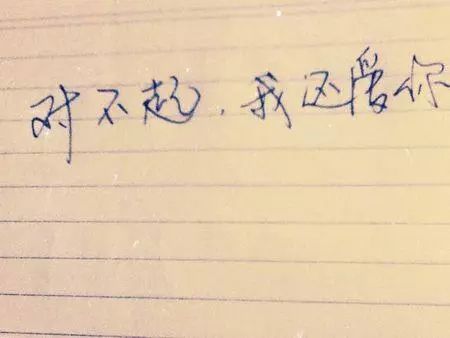 对不起.我还爱你